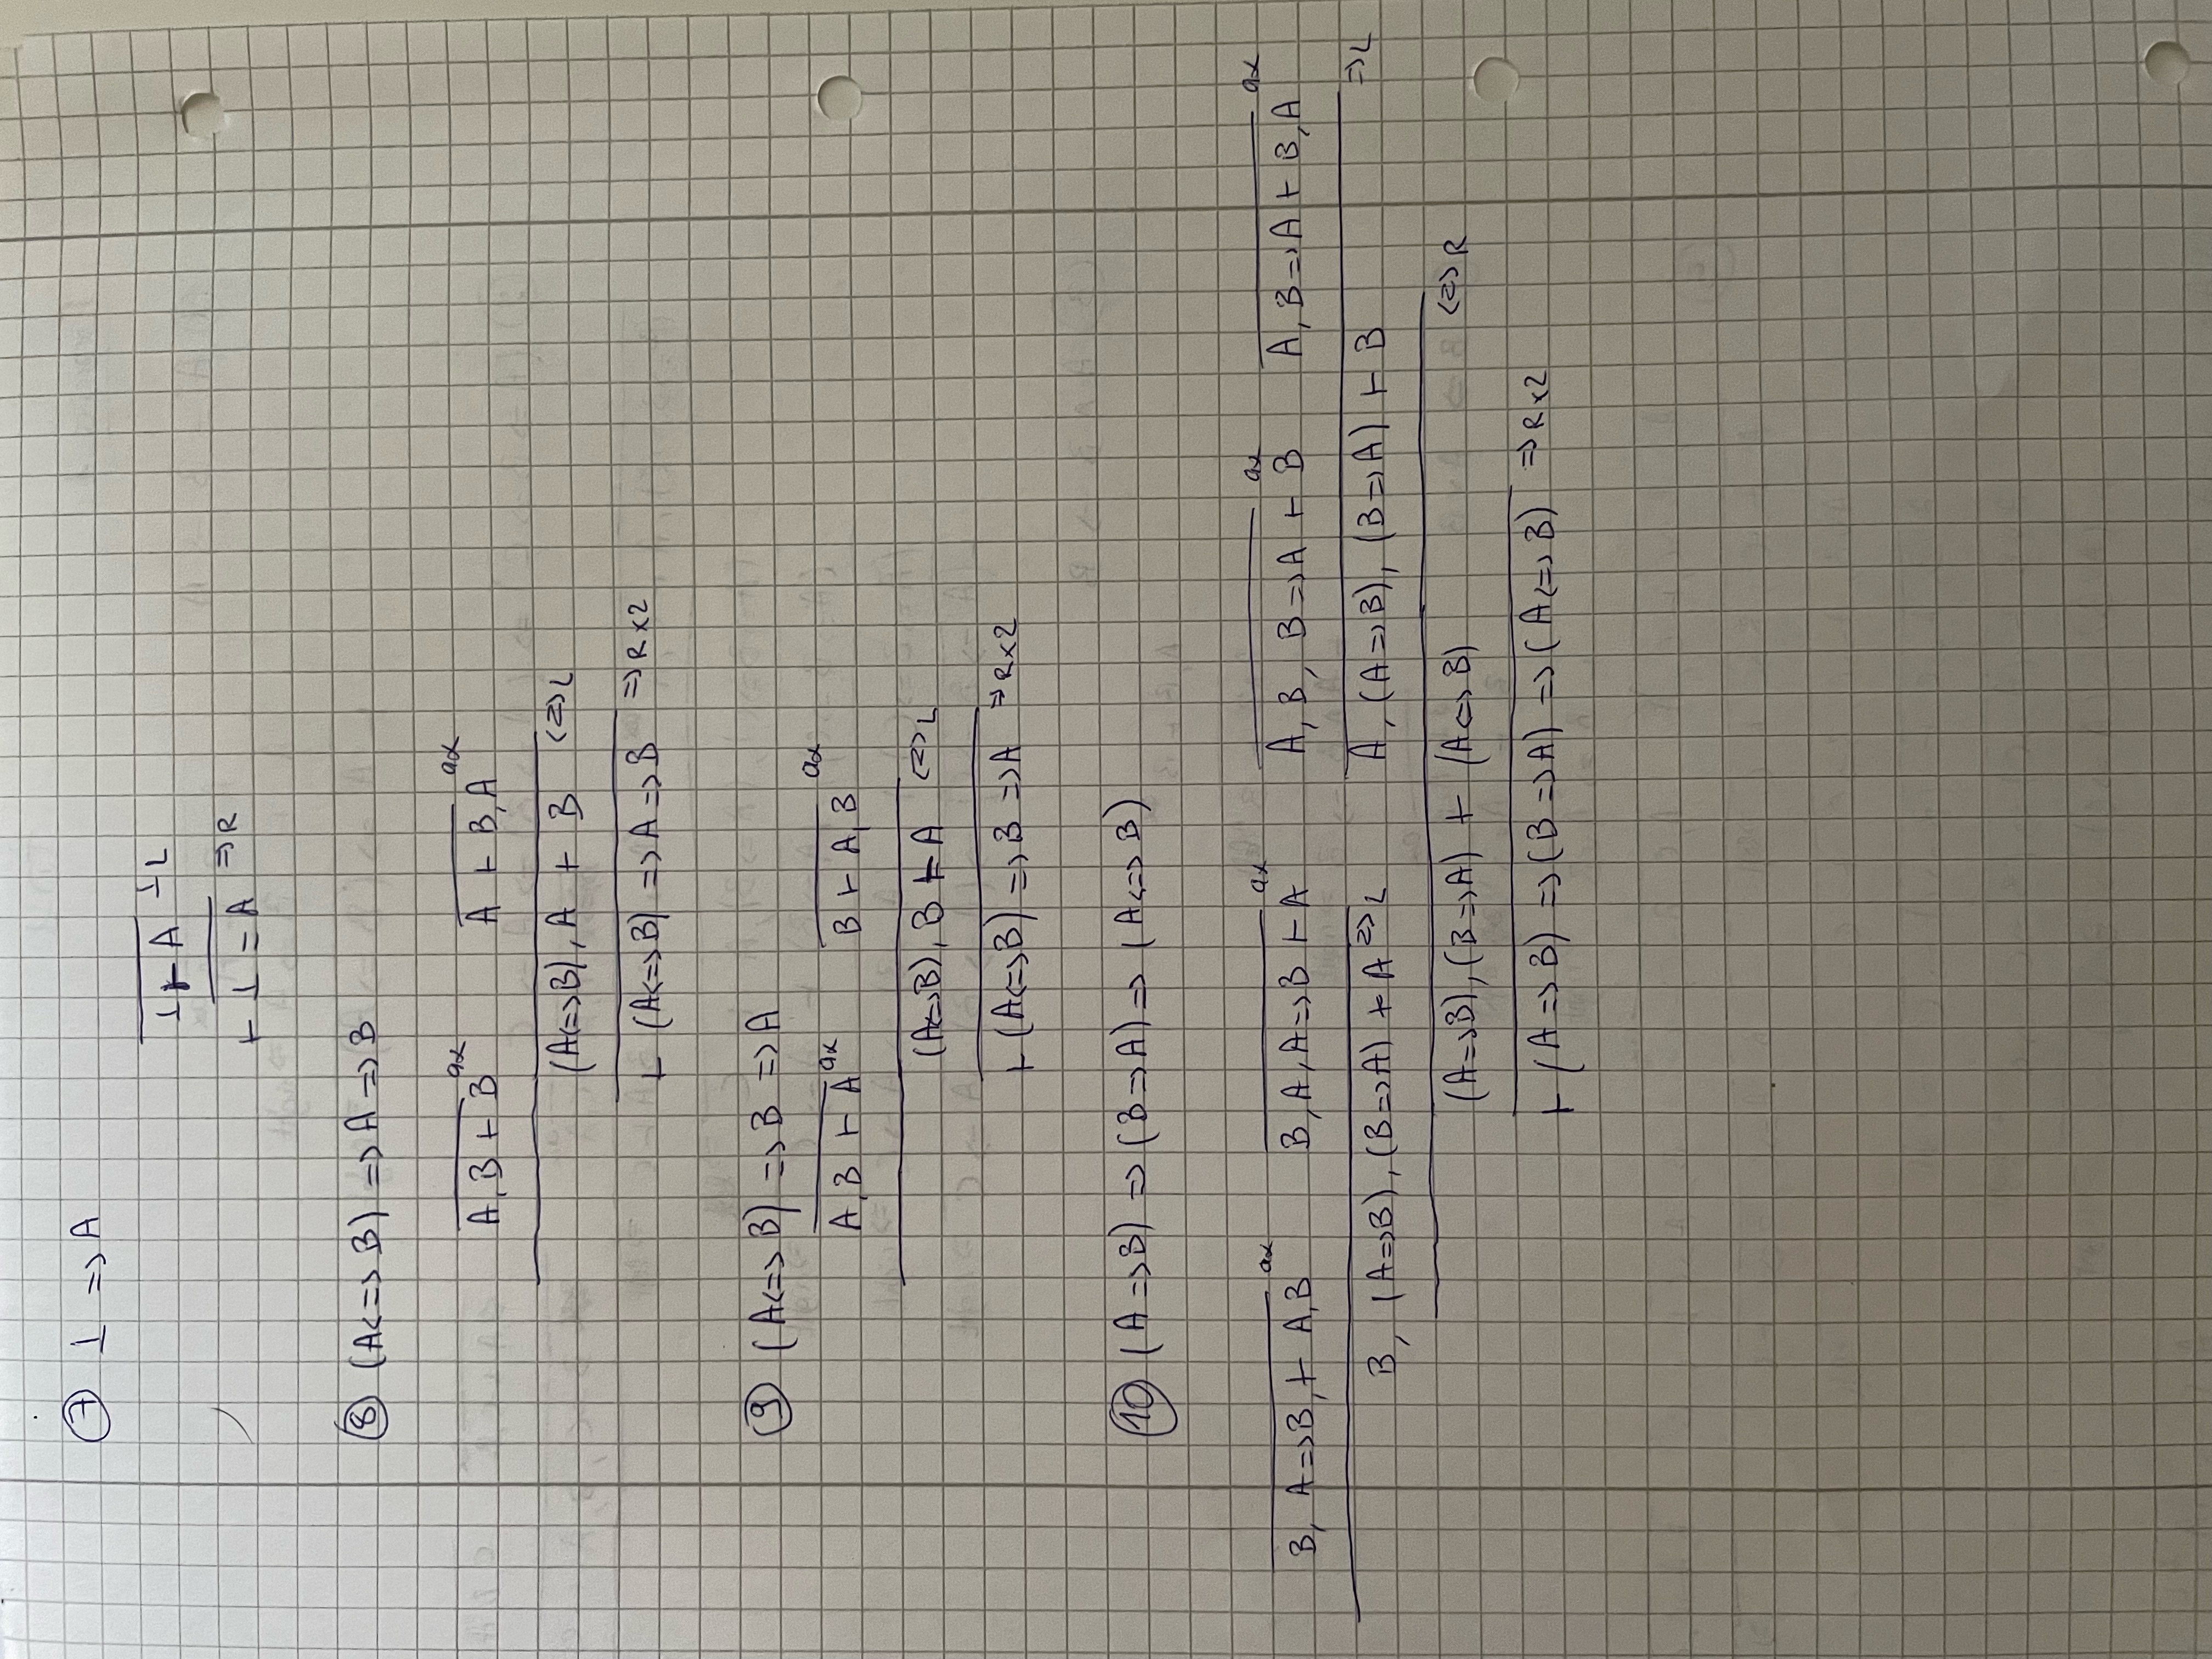 ⑦ ⊥ => A
⊥ ⊢ A ⊥L
⊢ ⊥ = A =>R
⑧ (A<=>B) => A => B
A, B ⊢ B ax A ⊢ B, A ax
(A<=>B), A ⊢ B <=>L
⊢ (A<=>B) => A => B =>R x2
⑨ (A<=>B) => B => A
A, B ⊢ A ax B ⊢ A, B ax
(A<=>B), B ⊢ A <=>L
⊢ (A<=>B) => B => A =>R x2
⑩ (A => B) => (B => A) => (A<=>B)
B, A=>B, ⊢ A, B ax B, A, A=>B ⊢ A ax A, B, B=>A ⊢ B ax A, B=>A ⊢ B, A ax
B, (A=>B), (B=>A) ⊢ A =>L A, (A=>B), (B=>A) ⊢ B =>L
(A=>B), (B=>A) ⊢ (A<=>B) <=>R
⊢ (A => B) => (B => A) => (A<=>B) =>R x2